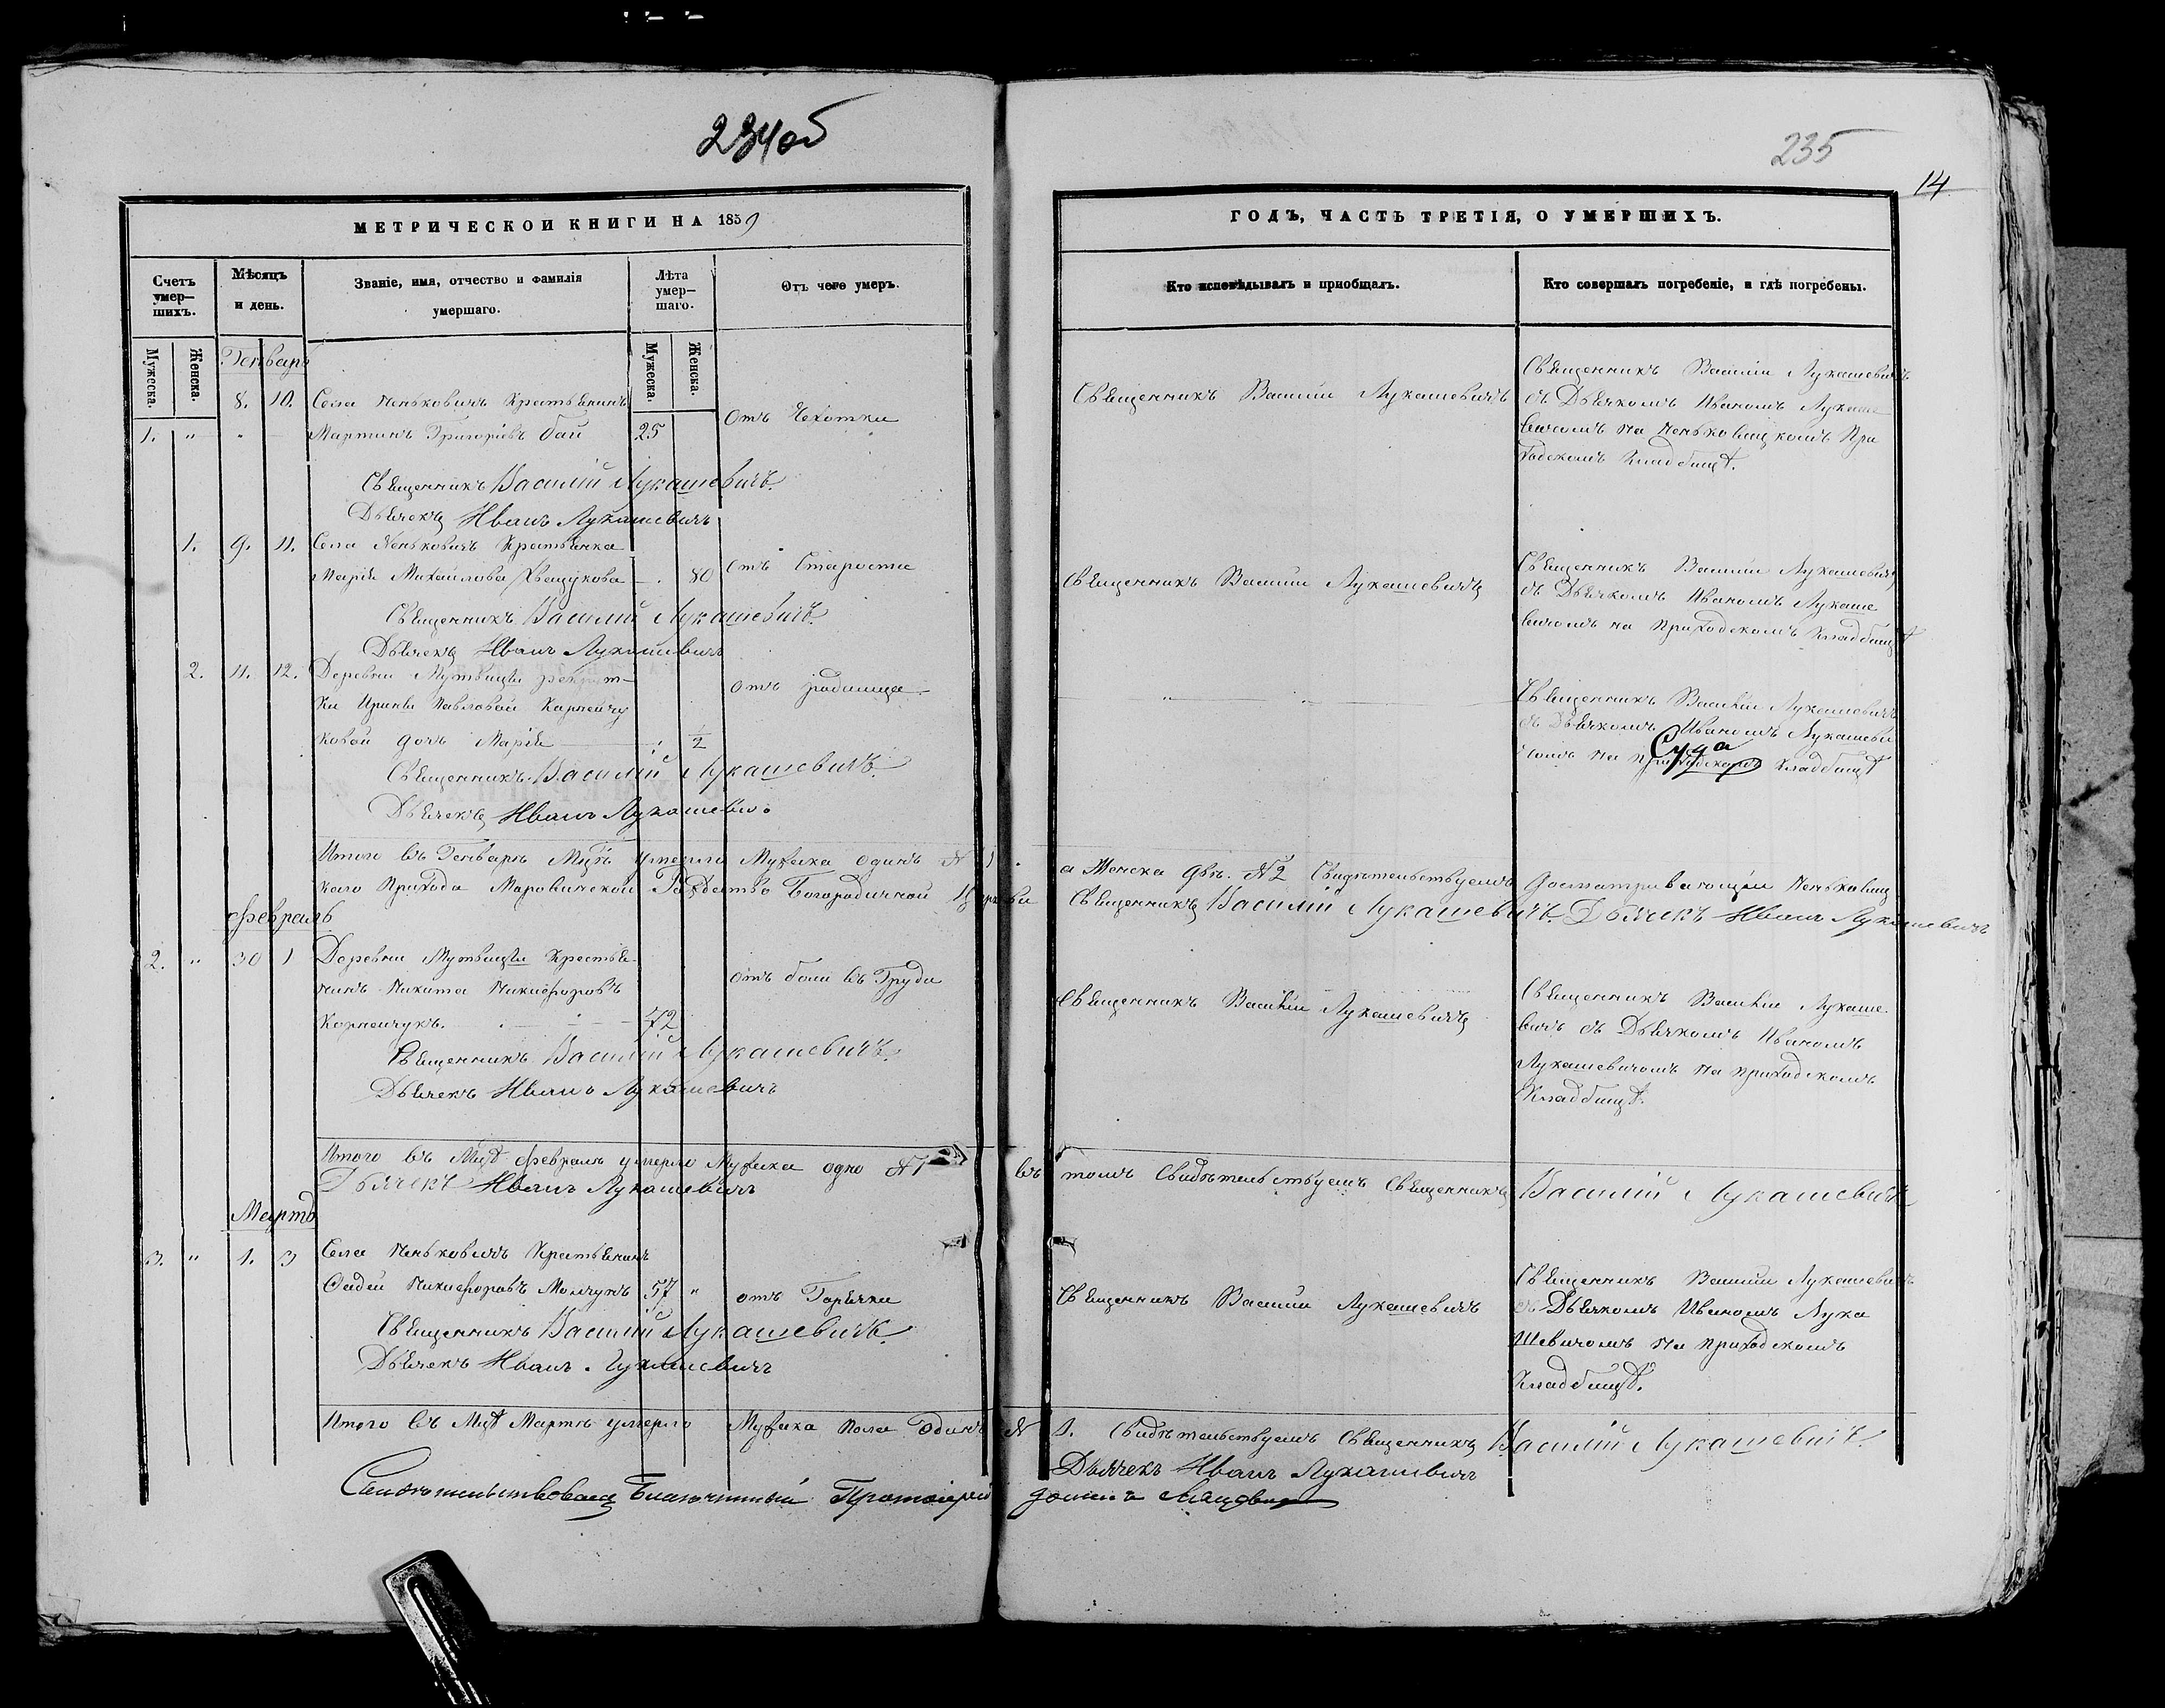 234об
МЕТРИЧЕСКОЙ КНИГИ НА 1859
Счетъ умер—шихъ.
Мѣсяцъ и день.
Званіе, имя, отчество и фамилія умершаго.
Лѣта умер—шаго.
Отъ чего умеръ.
Мужеска.
Женска.
Мужеска.
Женска.
Генварь
8. 10. Села Пеньковичъ Крестьянинъ
1. " Мартинъ Григоріевъ Бай 25
Отъ Чехотки
Священникъ Василій Лукашевичъ.
Дьячекъ Иванъ Лукашевичъ
1. 9. 11. Села Пеньковичъ Крестьянка
Марія Михайлова Хвещукова 80
отъ Старости
Священникъ Василій Лукашевичъ.
Дьячекъ Иванъ Лукашевичъ
2. 11. 12. Деревни Мутвицы рекрут-
ки Ирины Павловой Карпейчу
ковой дочь Марія 1/2
отъ родимца
Священникъ Василій Лукашевичъ.
Дьячекъ Иванъ Лукашевичъ
Итого въ Генварѣ Мцѣ умерло Мужеска одинъ N 1.
каго Прихода Маровинской Рождество Богородичной Церкви
Февраль
2. " 30 1 Деревни Мутвицы Крестья-
нинъ Никита Никифоровъ
Корпейчукъ. 72
отъ боли въ Груди
Священникъ Василій Лукашевичъ.
Дьячекъ Иванъ Лукашевичъ
Итого въ Мцѣ Февралѣ умерло Мужеска одно N 1
Дьячекъ Иванъ Лукашевичъ
Мартъ
3. " 1. 3 Села Пеньковичъ Крестьянинъ
Фадей Никифоровъ Молчунъ 57 "
отъ Горячки
Священникъ Василій Лукашевичъ.
Дьячекъ Иванъ Лукашевичъ
Итого въ Мцѣ Мартѣ умерло Мужеска пола Одинъ N
Свидѣтельствовалъ Благочинный Протоіерей
235
14
ГОДЪ, ЧАСТЬ ТРЕТІЯ, О УМЕРШИХЪ.
Кто исповѣдывалъ и пріобщалъ.
Кто совершалъ погребеніе, и гдѣ погребены.
Священникъ Василій Лукашевичъ
Священникъ Василій Лукашевичъ
съ Дьячкомъ Иваномъ Лукаше
вичомъ на Пеньковицкомъ При
ходскомъ Кладбищѣ.
Священникъ Василій Лукашевичъ
Священникъ Василій Лукашевичъ
съ Дьячкомъ Иваномъ Лукаше
вичомъ на Приходскомъ Кладбищѣ
Священникъ Василій Лукашевичъ
съ Дьячкомъ Иваномъ Лукашеви
чомъ на приходскомъ Кладбищѣ
а Женска двѣ. N 2 Свидѣтельствуемъ досматривающій Пеньковиц
Священникъ Василій Лукашевичъ. Дьячекъ Иванъ Лукашевичъ
Священникъ Василій Лукашевичъ
Священникъ Василій Лукаше-
вичъ съ Дьячкомъ Иваномъ
Лукашевичомъ на приходскомъ
Кладбищѣ.
въ томъ Свидѣтельствуемъ Священникъ Василій Лукашевичъ
Священникъ Василій Лукашевичъ
Священникъ Василій Лукашевичъ
съ Дьячкомъ Иваномъ Лука
шевичомъ на приходскомъ
Кладбищѣ.
1. Свидѣтельствуемъ Священникъ Василій Лукашевичъ.
Дьячекъ Иванъ Лукашевичъ